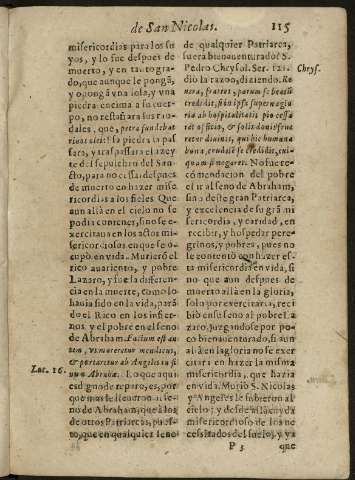 de San Nicolas. 115
misericordias para los su
yos, y lo fue despues de
muerto, y en tanto gra-
do, que aunque le pongã,
y opongã vna losa, y vna
piedra encima a su cuer-
po, no
dales, que, petra fundebat
rivos olei: si a piedra la pas
sara, y traspassara el azey
te del sepulcro del San-
cto, para no cessar despues
de muerto en hazer mise
ricordias a los fieles. Que
aun allà en el cielo no se
pudo contener, sino se e-
xercitaua en los actos mi-
sericordiosos en que se o-
cupò en vida. Murierõ el
rico auariento, y pobre
Lazaro, y fue la diferen-
cia en la muerte, como lo
hauia sido en la vida, parã
do el Rico en los infier-
nos y el pobre en el seno
de Abraham. Factum est au
tem, vt moreretur mendicus,
& portaretur ab Angelis in si
num Abrahæ. Lo que aqui
Luc. 16.
es digno de reparo, es, por
que mas le lleuaron al se-
no de Abraham, que a los
de otros Patriarcas, pues-
to, que en qualquier seno
de qualquier Patriarca,
fuera bienauenturado? S.
Pedro Chrysol. Ser. 121.
Chrys.
dio la razon, diziendo.
fratres, parum se beasse
credidit, si in ipsa superna glo
ria ab hospitalitatis pio cessa
ret officio,
humana
bona,
No fue re
comendacion del pobre
el ir al seno de Abraham,
sino deste gran Patriarca,
y excelencia de su grã mi
sericordia, y caridad, en
recibir, y hospedar pere-
grinos, y pobres, pues no
le contentò con hazer es-
ta misericordia en vida, si
no que aun despues de
muerto allà en la gloria,
solo por exercitarla, reci
biò en su seno al pobre La
zaro, juzgandose por po-
co bienauenturado, si aun
allà en la gloria no se exer
citara en hazer la misma
misericordia, que hazia
en vida. Muriò S. Nicolas
y Angeles le subieron al
cielo; y desde allà cuyda
misericordioso de los ne
cessitados del suelo, y ya
P 3 que